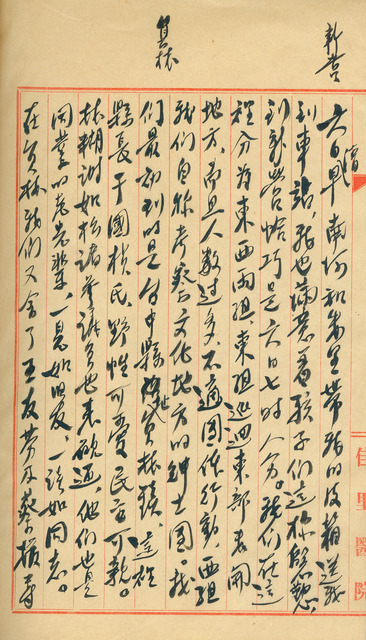 新營
員林
六日早南河和朱里帶我的皮箱送我
到車站,我也滿意看孩子們這樣慇懃。
到新營恰巧是六日七時八分。我們在這
裡分為東西兩組,東組巡迴東部
地方,而且人數過多不適團体行動,西組
我們自稱考察文化地方的紳士團。我
們最初到的是台中縣地員林鎮,這
縣長于國楨氏,野性可愛民面可親。
林糊謝如松諸參議員也表歡迎,他們也是
同業的老先輩,一見如旧友,一談如同志。
在員林我們又會了王友芬及蔡振
佳里醫院